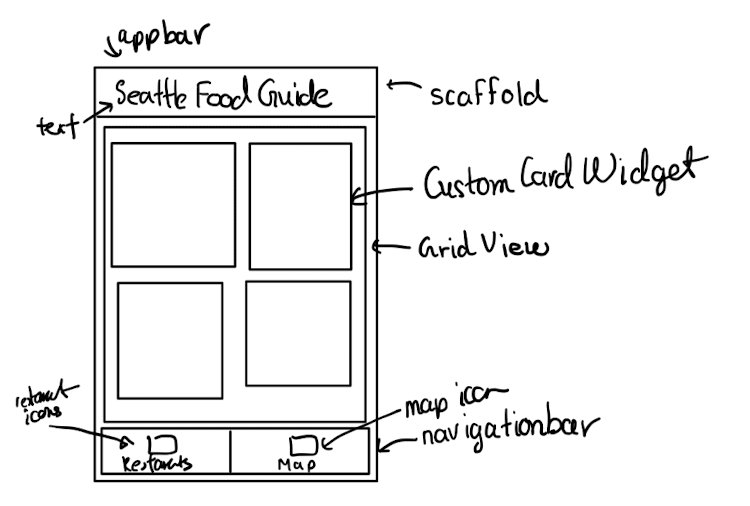 appbar
Seattle Food Guide
scaffold
text
Custom Card Widget
Grid View
icons
map icon
navigationbar
Map